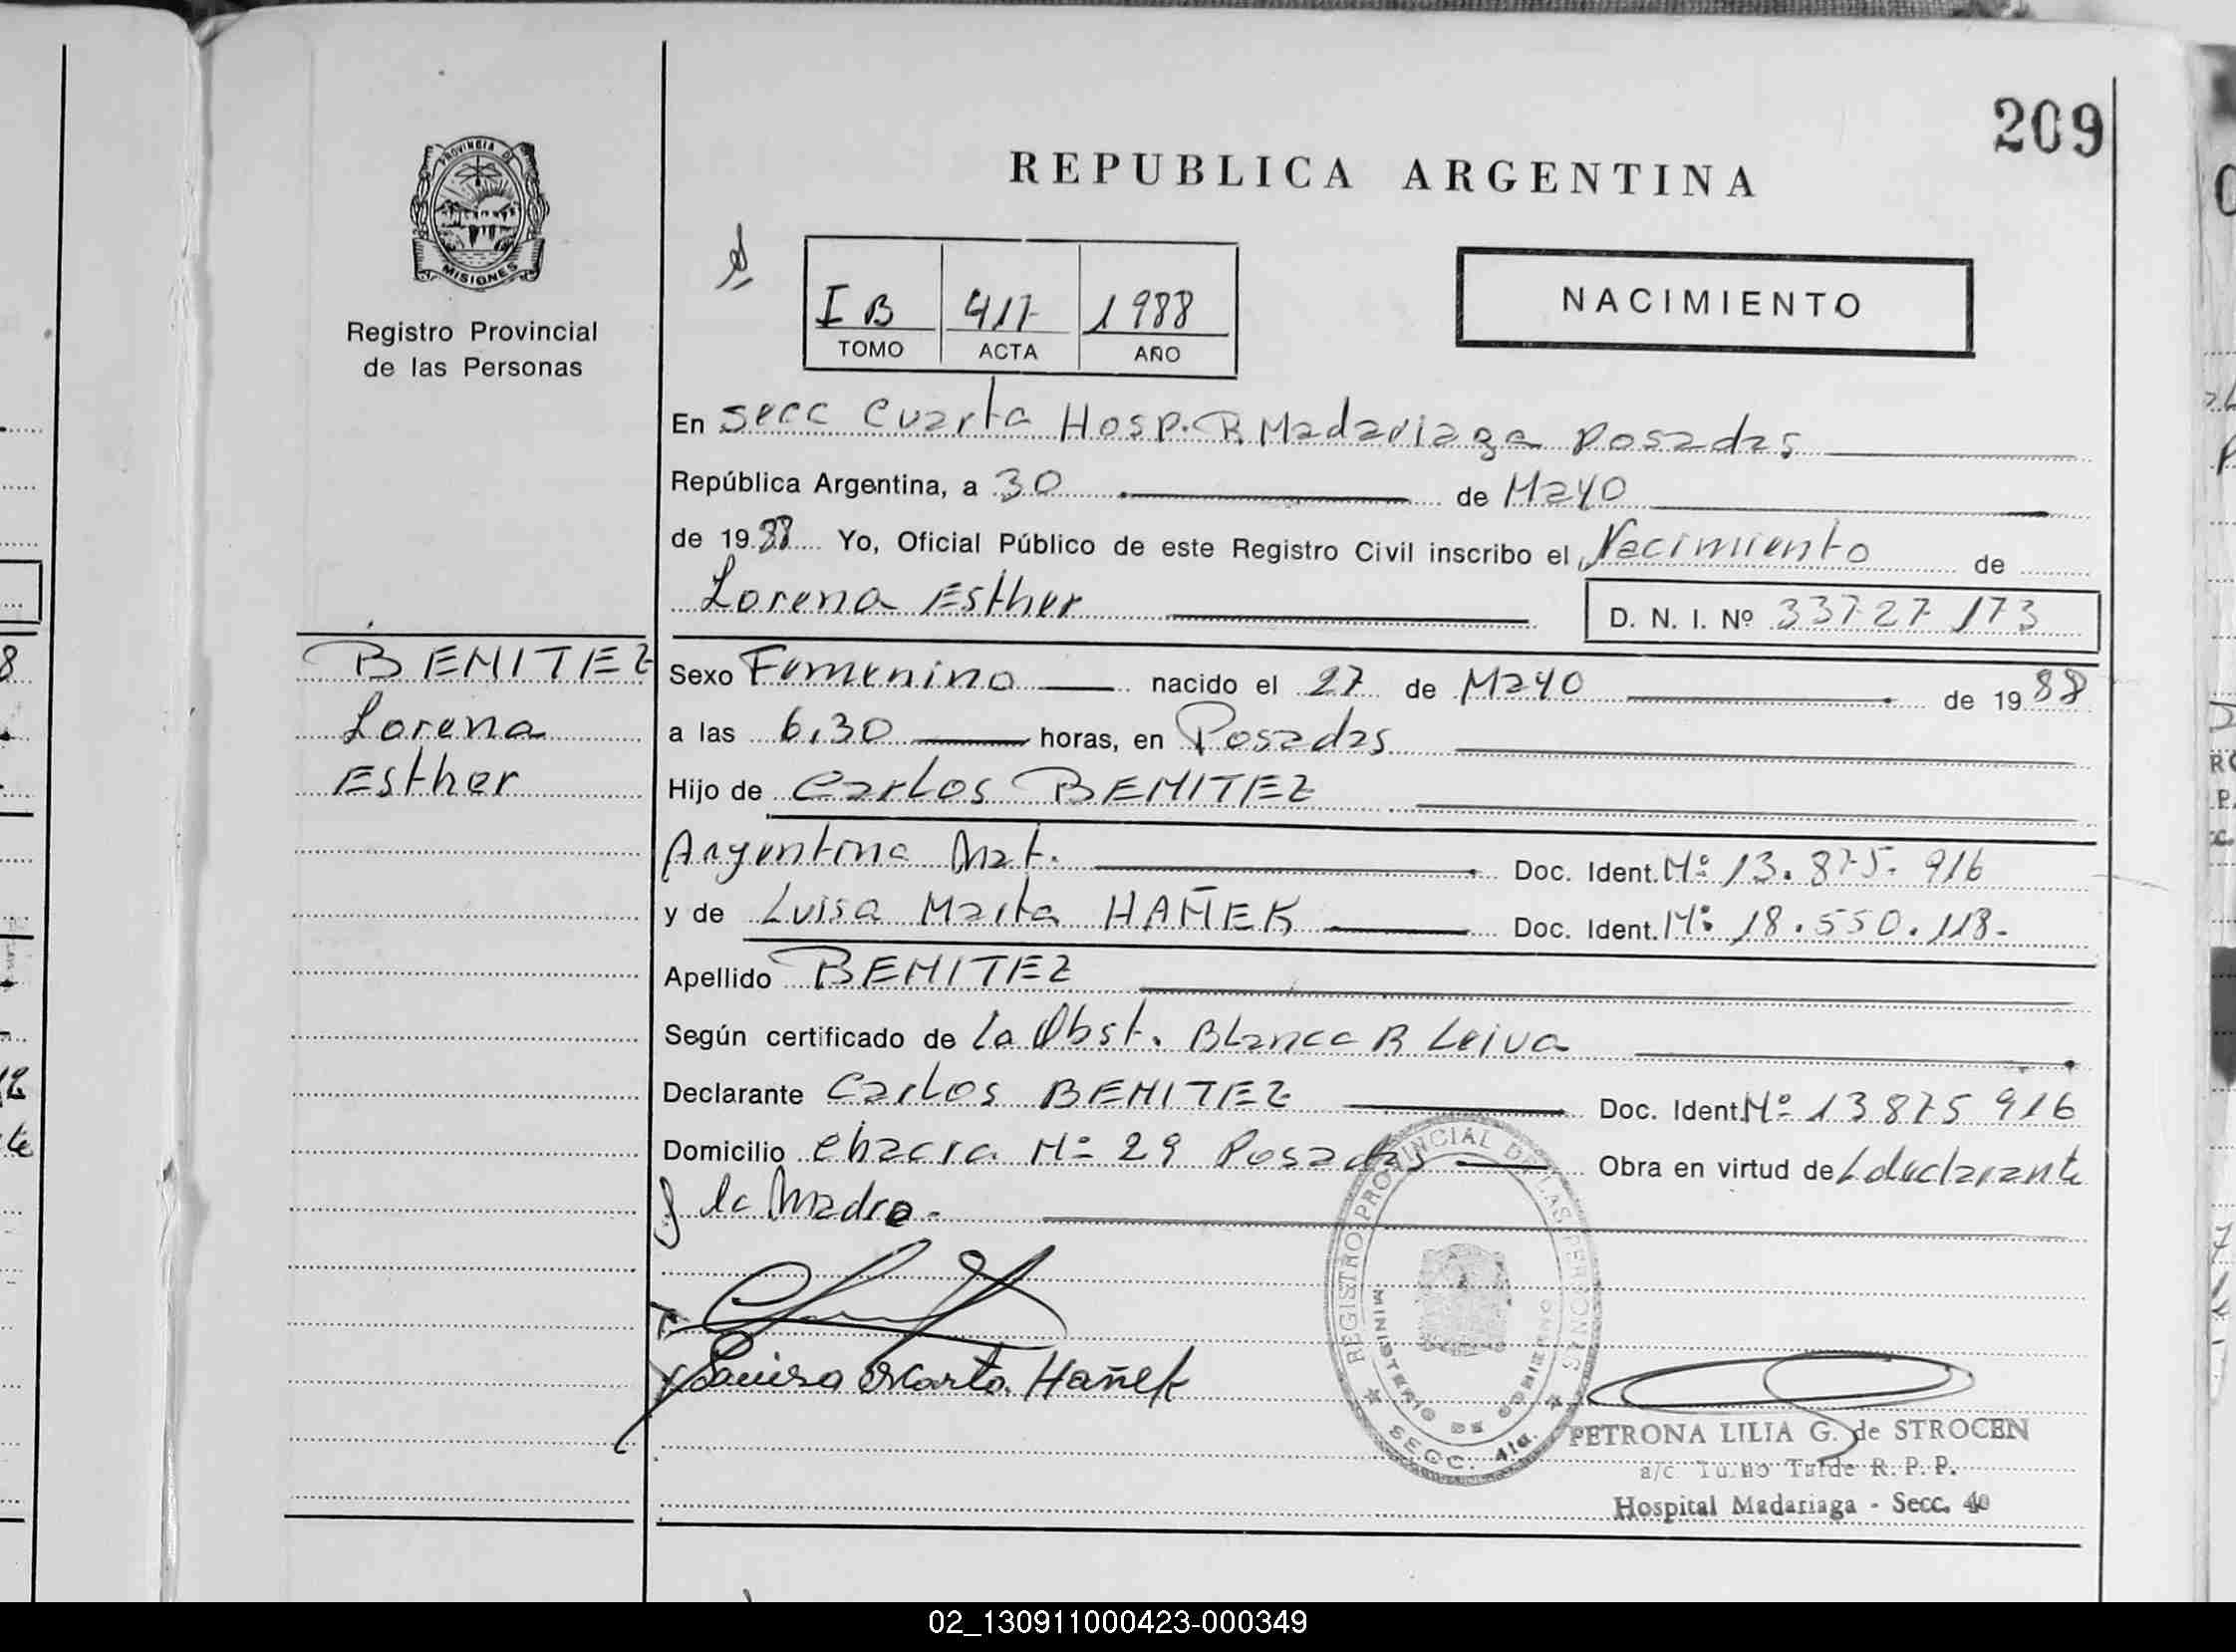 209
REPUBLICA ARGENTINA
PROVINCIA DE
MISIONES
Registro Provincial
de las Personas
I B 417 1988
TOMO ACTA AÑO
NACIMIENTO
En Secc Cuarta Hosp. R Madariaga Posadas
República Argentina, a 30 de Mayo
de 1988 Yo, Oficial Público de este Registro Civil inscribo el Nacimiento de
Lorena Esther
D. N. I. Nº 33727173
BENITEZ
Lorena
Esther
Sexo Femenino nacido el 27 de Mayo de 1988
a las 6,30 horas, en Posadas
Hijo de Carlos BENITEZ
Argentina Nat. Doc. Ident. Nº 13.875.916
y de Luisa Marta HAÑEK Doc. Ident. Nº 18.550.118.
Apellido BENITEZ
Según certificado de la Obst. Blanca R Leiva
Declarante Carlos BENITEZ Doc. Ident. Nº 13875916
Domicilio Chacra Nº 29 Posadas Obra en virtud de L declarante
y la Madre.
Luisa Marta Hañek
REGISTRO PROVINCIAL DE LAS PERSONAS
MINISTERIO DE GOBIERNO
SECC. 4ta.
PETRONA LILIA G. de STROCEN
a/c Turno Tarde R. P. P.
Hospital Madariaga - Secc. 4a
02_130911000423-000349